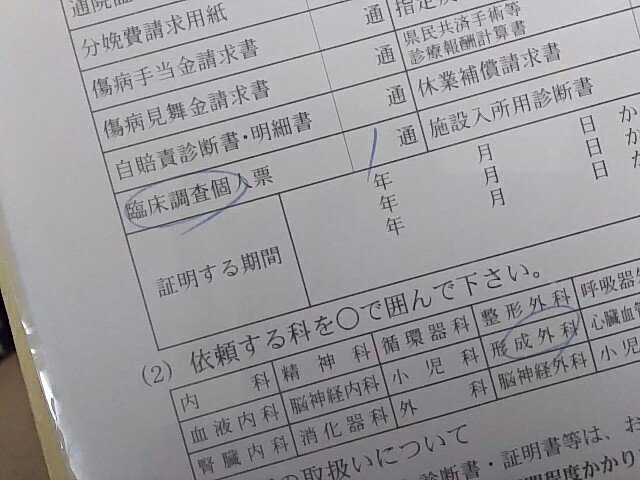 通院
分娩費請求用紙 通 指定
傷病手当金請求書 通 県民共済手術等
診療報酬計算書
傷病見舞金請求書 通 休業補償請求書
自賠責診断書・明細書 通 施設入所用診断書
臨床調査個人票 1
証明する期間
年 月 日 か
年 月 日
年 月 日 か
(2) 依頼する科を○で囲んで下さい。
内科 精神科 循環器科 整形外科 呼吸器
血液内科 脳神経内科 小児科 形成外科 心臓血管
腎臓内科 消化器科 外科 脳神経外科 小児
の取扱いについて
診断書・証明書等は、お
程度かかり